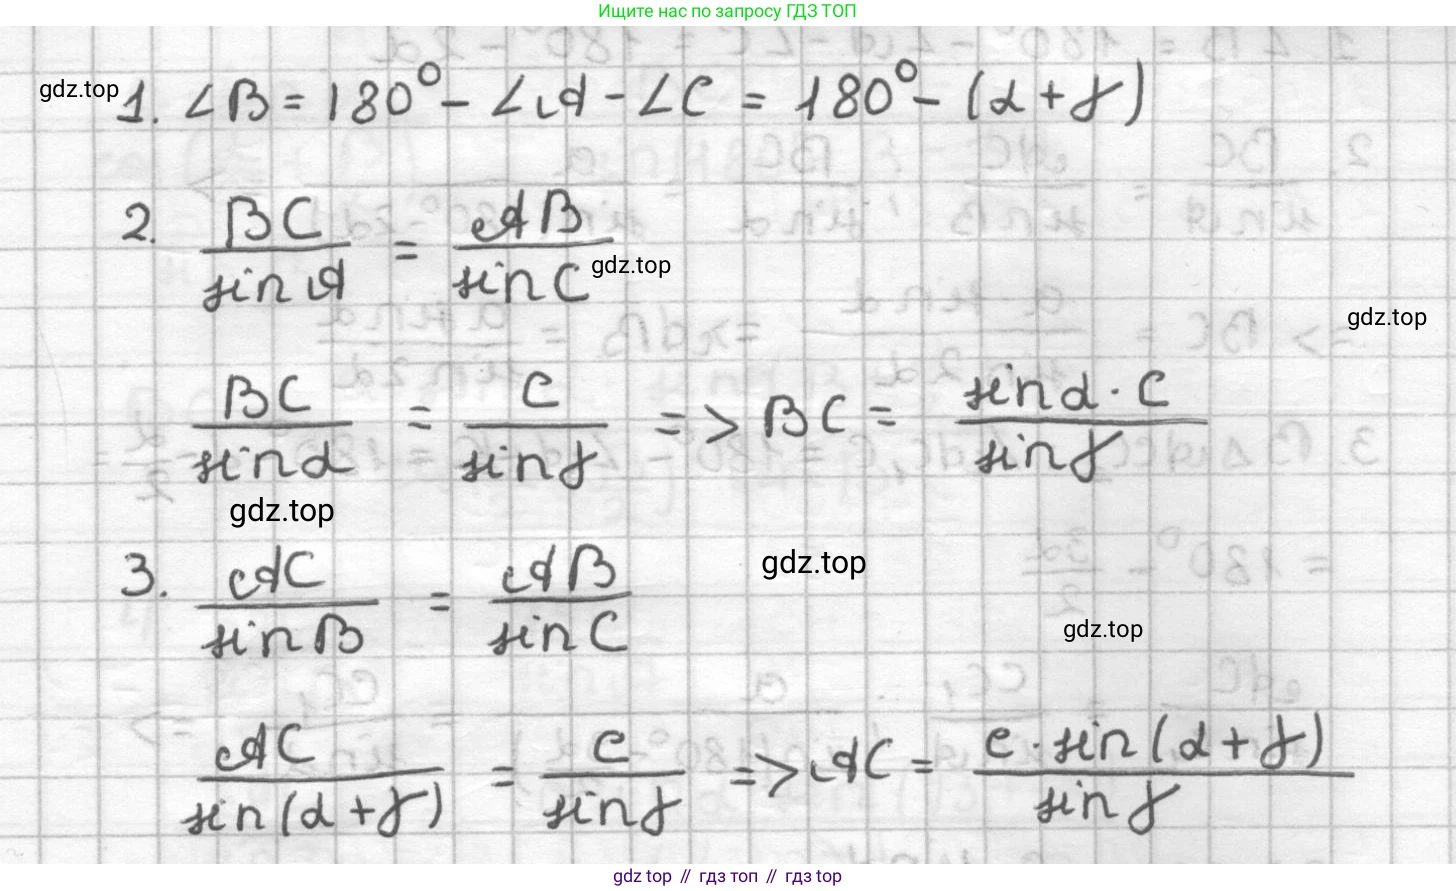 Ищите нас по запросу ГДЗ ТОП
gdz.top
1. ∠B = 180° - ∠A - ∠C = 180° - (α + γ)
2. BC / sin A = AB / sin C
gdz.top
gdz.top
BC / sin α = c / sin γ => BC = sin α · c / sin γ
gdz.top
3. AC / sin B = AB / sin C
gdz.top
gdz.top
AC / sin(α + γ) = c / sin γ => AC = c · sin(α + γ) / sin γ
gdz top // гдз топ // гдз top